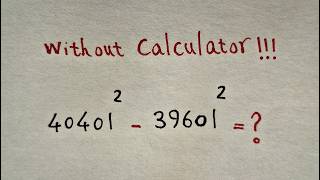 Without Calculator!!!
40401² - 39601² = ?